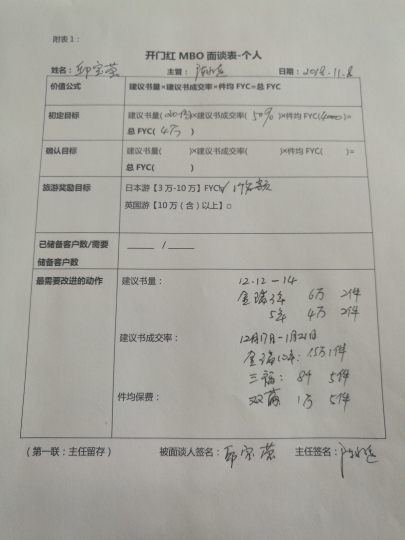 附表1：
开门红 MBO 面谈表-个人
姓名：邱宝荣 主管： 日期：2018.11.8
价值公式 建议书量×建议书成交率×件均 FYC=总 FYC
初定目标 建议书量( )×建议书成交率( 50% )×件均 FYC(4000)=
总 FYC( 4万 )
确认目标 建议书量( )×建议书成交率( )×件均 FYC( )=
总 FYC( )
旅游奖励目标 日本游【3万-10万】FYC√ 1个名额
英国游【10万（含）以上】□
已储备客户数/需要 ____ /____
储备客户数
最需要改进的动作 建议书量： 12.12-14
金瑞3年 6万 2件
5年 4万 2件
建议书成交率： 12月17日-1月21日
金瑞10年： 1.5万 1件
三福： 8千 5件
件均保费： 双 1万 5件
（第一联：主任留存） 被面谈人签名：邱宝荣 主任签名：